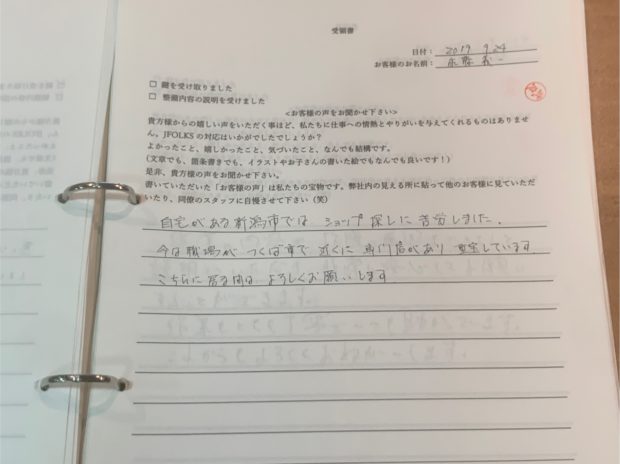 受領書
日付： 2019 9.24
お客様のお名前：
□ 鍵を受け取りました
□ 整備内容の説明を受けました
<お客様の声をお聞かせ下さい>
貴方様からの嬉しい声をいただく事ほど、私たちに仕事への情熱とやりがいを与えてくれるものはありませ
ん。JFOLKSの対応はいかがでしたでしょうか？
よかったこと、嬉しかったこと、気づいたこと、なんでも結構です。
(文章でも、箇条書きでも、イラストやお子さんの書いた絵でもなんでも良いです！)
是非、貴方様の声をお聞かせ下さい。
書いていただいた「お客様の声」は私たちの宝物です。弊社内の見える所に貼って他のお客様に見ていただ
いたり、同僚のスタッフに自慢させて下さい（笑）
自宅がある新潟市では ショップ探しに苦労しました。
今は職場が つくば市で 近くに 専門店があり 重宝しています。
こちらに居る間は よろしくお願いします